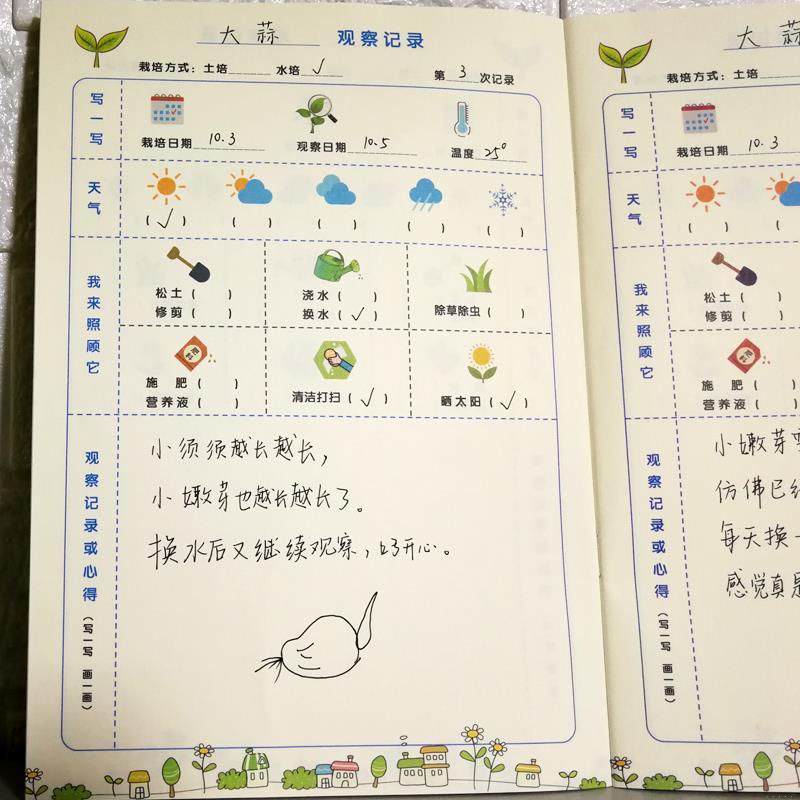 大蒜 观察记录
栽培方式：土培______ 水培__√__ 第__3__次记录
写一写
栽培日期 10.3 观察日期 10.5 温度 25°
天气
( √ ) ( ) ( ) ( ) ( )
我来照顾它
松土 ( ) 浇水 ( ) 除草除虫 ( )
修剪 ( ) 换水 ( √ )
肥料
施 肥 ( ) 清洁打扫 ( √ ) 晒太阳 ( √ )
营养液 ( )
观察记录或心得（写一写 画一画）
小须须越长越长，
小嫩芽也越长越长了。
换水后又继续观察，好开心。
大蒜
栽培方式：土培
写一写
栽培日期 10.3
天气
( ) (
我来照顾它
松土 ( )
修剪 ( )
肥料
施 肥 ( )
营养液 ( )
观察记录或心得（写一写 画一画）
小嫩芽
仿佛已
每天换一
感觉真是